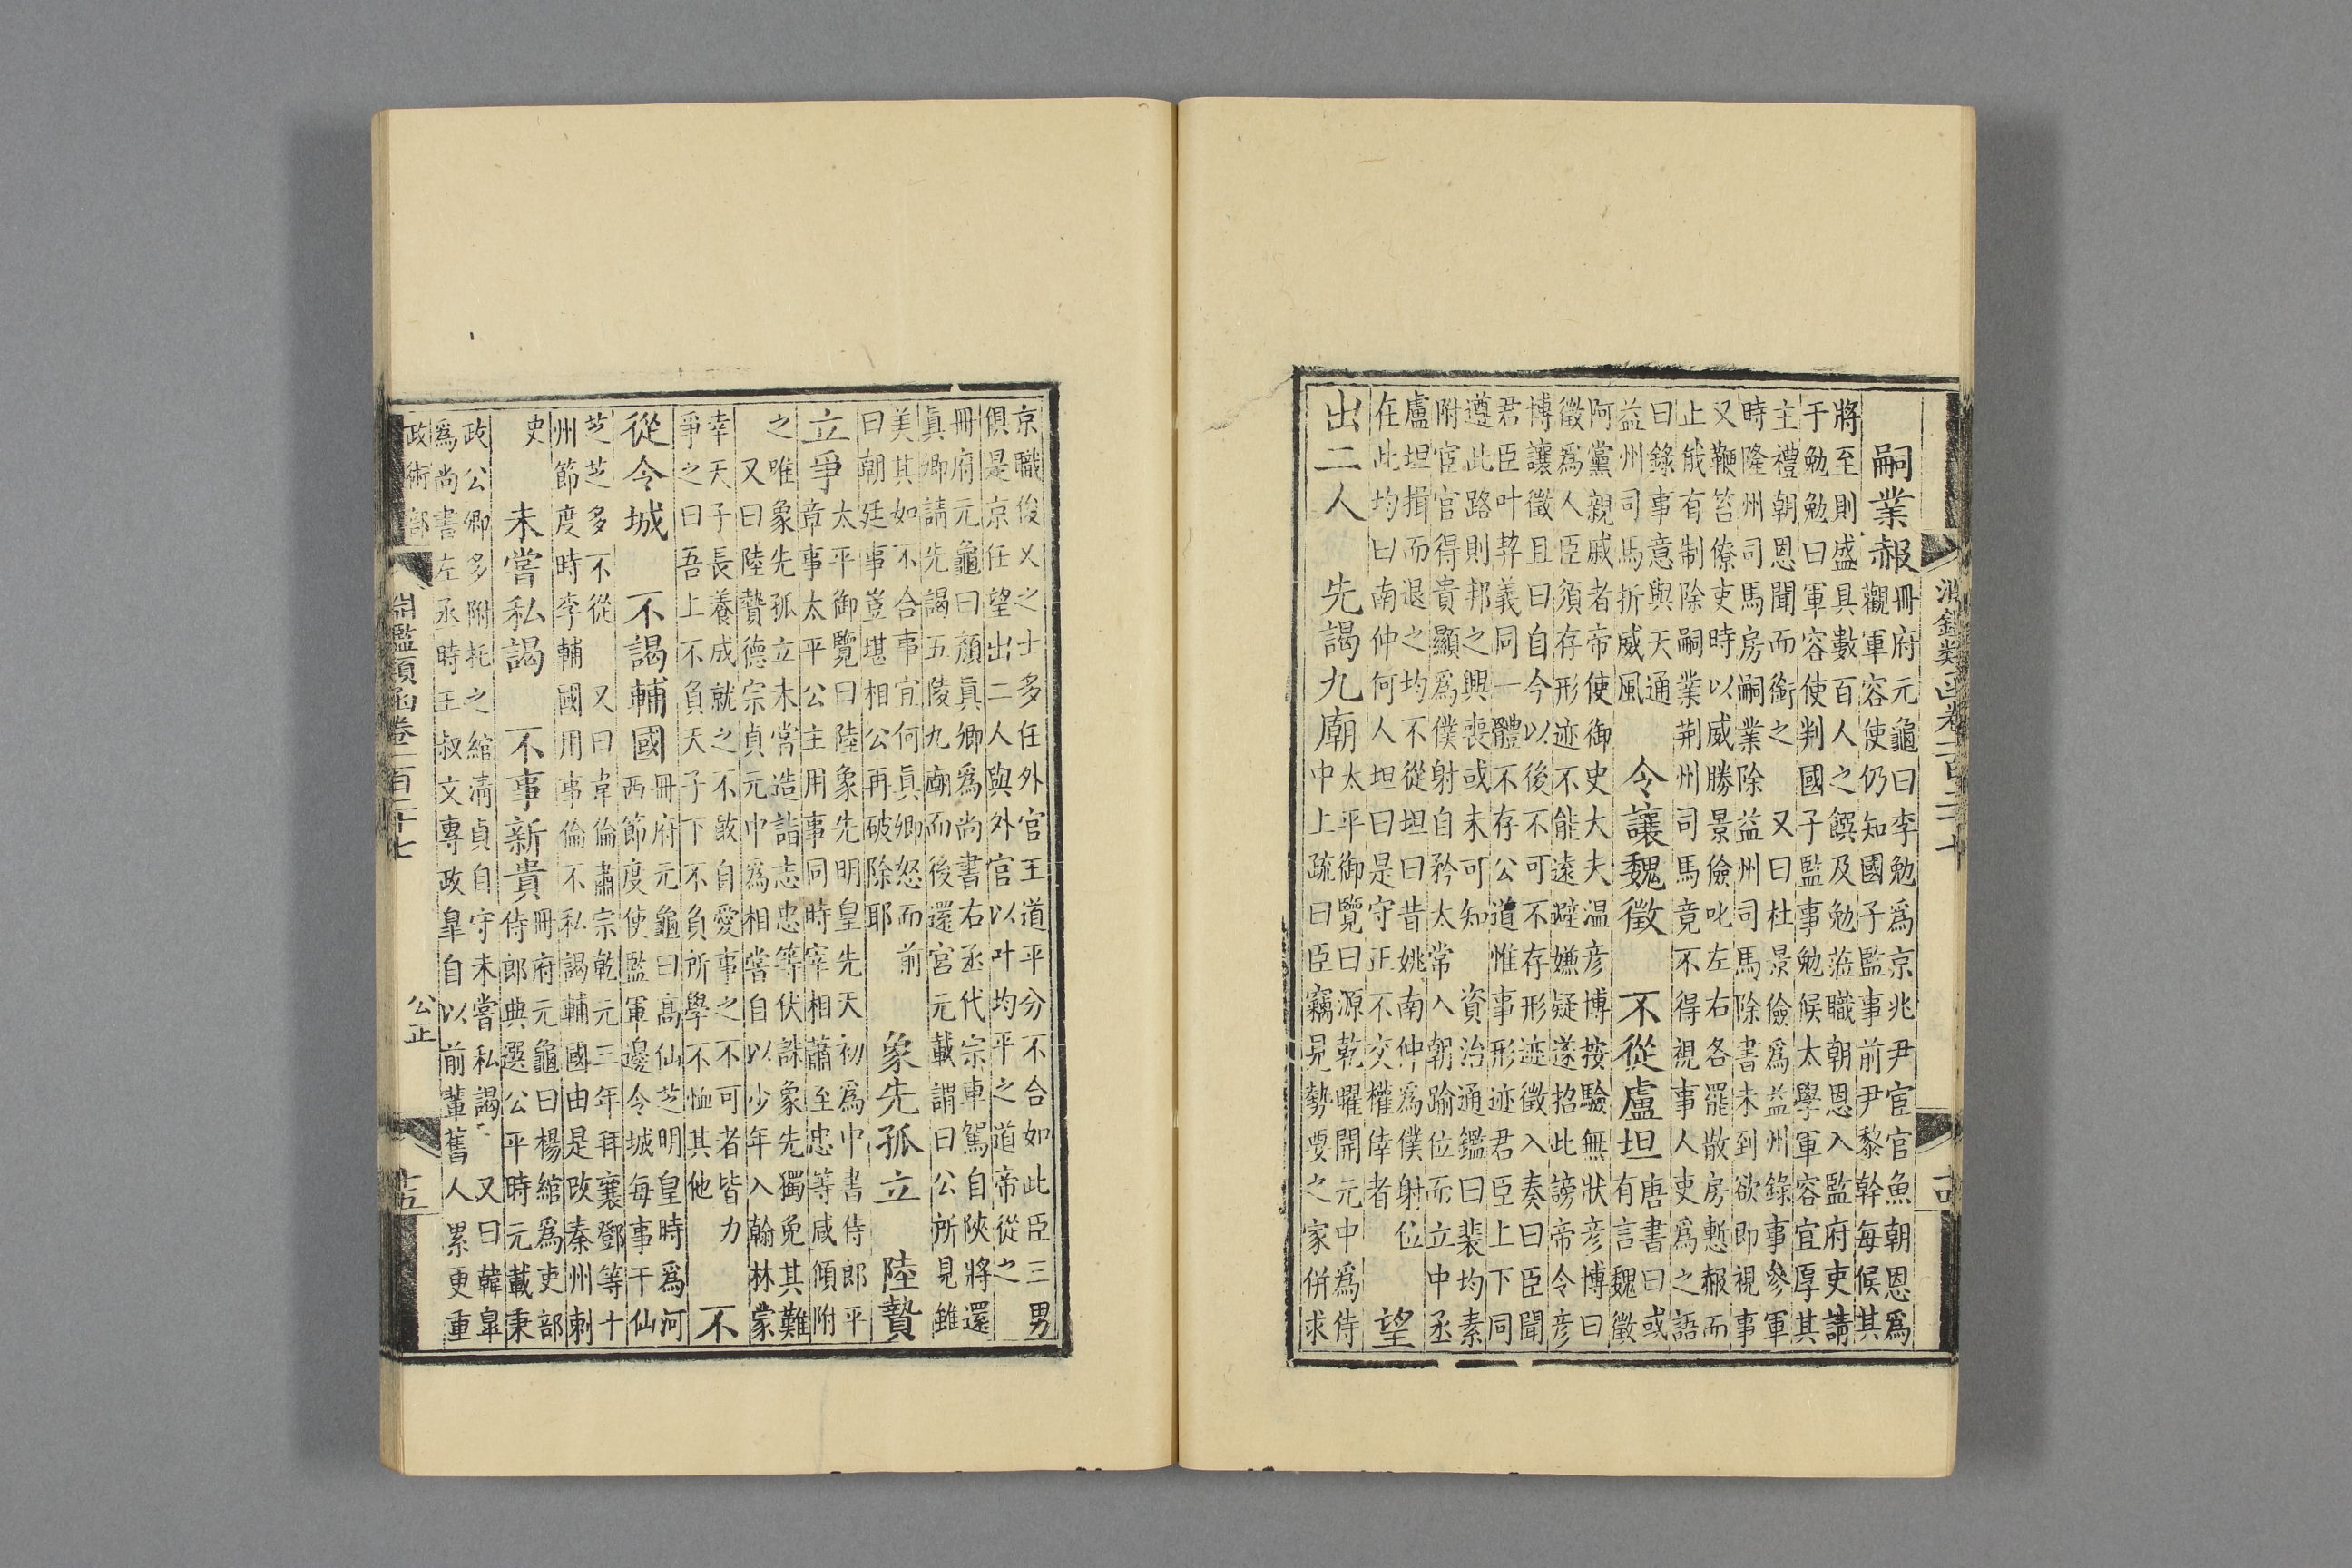 嗣業赧
冊府元龜曰李勉爲京兆尹宦官魚朝恩爲
觀軍容使仍知國子監事前尹黎幹每候其
將至則盛具數百人之饌及勉蒞職朝恩入監府吏請
于勉勉曰軍容使判國子監事勉候太學軍容宜厚其
主禮朝恩聞而銜之 又曰杜景儉爲益州錄事參軍
時隆州司馬房嗣業除益州司馬除書未到欲即視事
又鞭笞僚吏時以威勝景儉叱左右各罷散房慙赧而
止俄有制除嗣業荊州司馬竟不得視事人吏爲之語
曰錄事意與天通
益州司馬折威風
令讓魏徵 不從盧坦
唐書曰或
有言魏徵
阿黨親戚者帝使御史大夫温彦博按驗無狀彦博曰
徵爲人臣須存形迹不能遠避嫌疑遂招此謗帝令彦
博讓徵且曰自今以後不可不存形迹徵入奏曰臣聞
君臣叶契義同一體不存公道惟事形迹君臣上下同
遵此路則邦之興喪或未可知 資治通鑑曰裴均素
附宦官得貴顯爲僕射自矜太常入朝踰位而立中丞
盧坦揖而退之均不從坦曰昔姚南仲爲僕射位
在此均曰南仲何人坦曰是守正不交權倖者
望
出二人 先謁九廟
太平御覽曰源乾曜開元中爲侍
中上疏曰臣竊見勢要之家併求
京職俊乂之士多任外官王道平分不合如此臣三男
俱是京任望出二人與外官以叶均平之道帝從之
冊府元龜曰顏真卿爲尚書右丞代宗車駕自陝將還
真卿請先謁五陵九廟而後還宮元載謂曰公所見雖
美其如不合事宜何真卿怒而前
曰朝廷事豈堪相公再破除耶
象先孤立 陸贄
立爭
太平御覽曰陸象先明皇先天初爲中書侍郎平
章事太平公主用事同時宰相蕭至忠等咸傾附
之唯象先孤立未嘗造詣志忠等伏誅象先獨免其難
又曰陸贄德宗貞元中爲相嘗自以少年入翰林蒙
幸天子長養成就之不敢自愛事之不可者皆力
爭之曰吾上不負天子下不負所學不恤其他
不
從令城 不謁輔國
冊府元龜曰高仙芝明皇時爲河
西節度使監軍邊令城每事干仙
芝芝多不從 又曰韋倫肅宗乾元三年拜襄鄧等十
州節度時李輔國用事倫不私謁輔國由是改秦州刺
史 未嘗私謁 不事新貴
冊府元龜曰楊綰爲吏部
侍郎典選公平時元載秉
政公卿多附托之綰清貞自守未嘗私謁 又曰韓皐
爲尚書左丞時王叔文專政皐自以前輩舊人累更重
政術部 淵鑑類函卷二百二十七 公正 十五